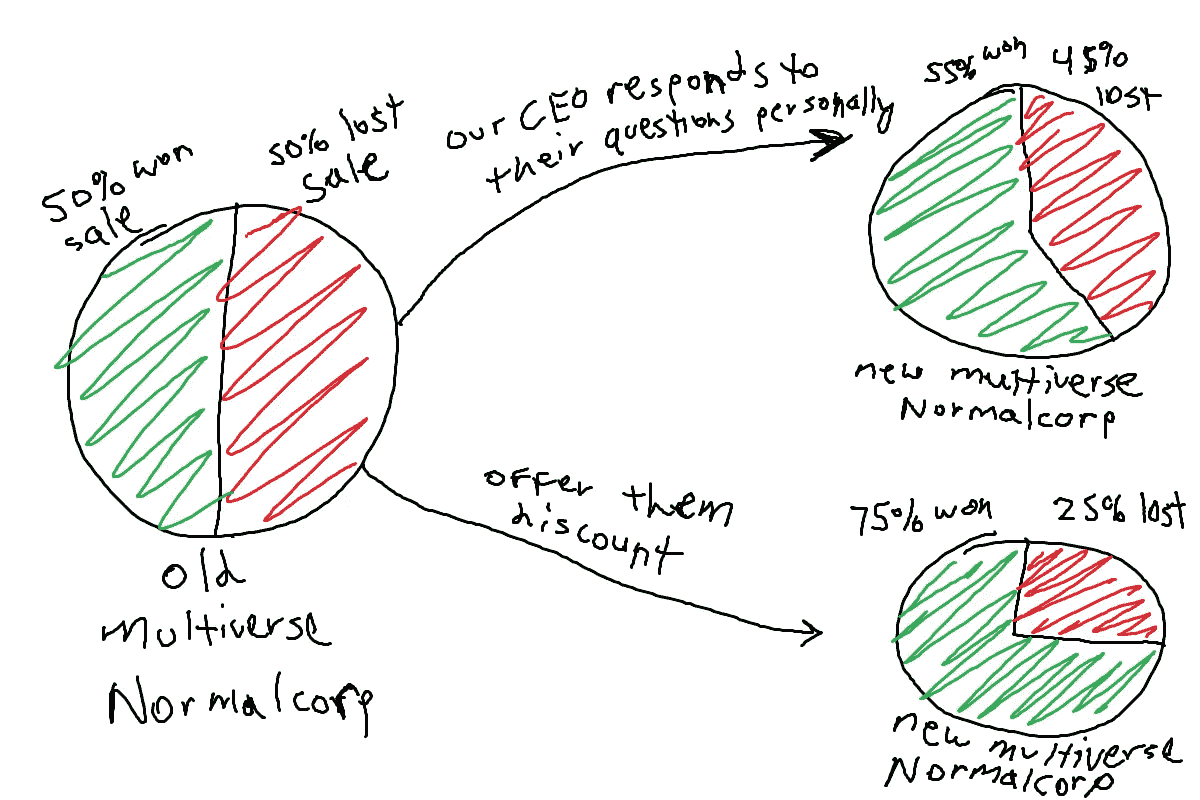 50% won
sale
50% lost
sale
old
multiverse
Normalcorp
our CEO responds to
their questions personally
55% won
45%
lost
new multiverse
Normalcorp
offer them
discount
75% won
25% lost
new multiverse
Normalcorp